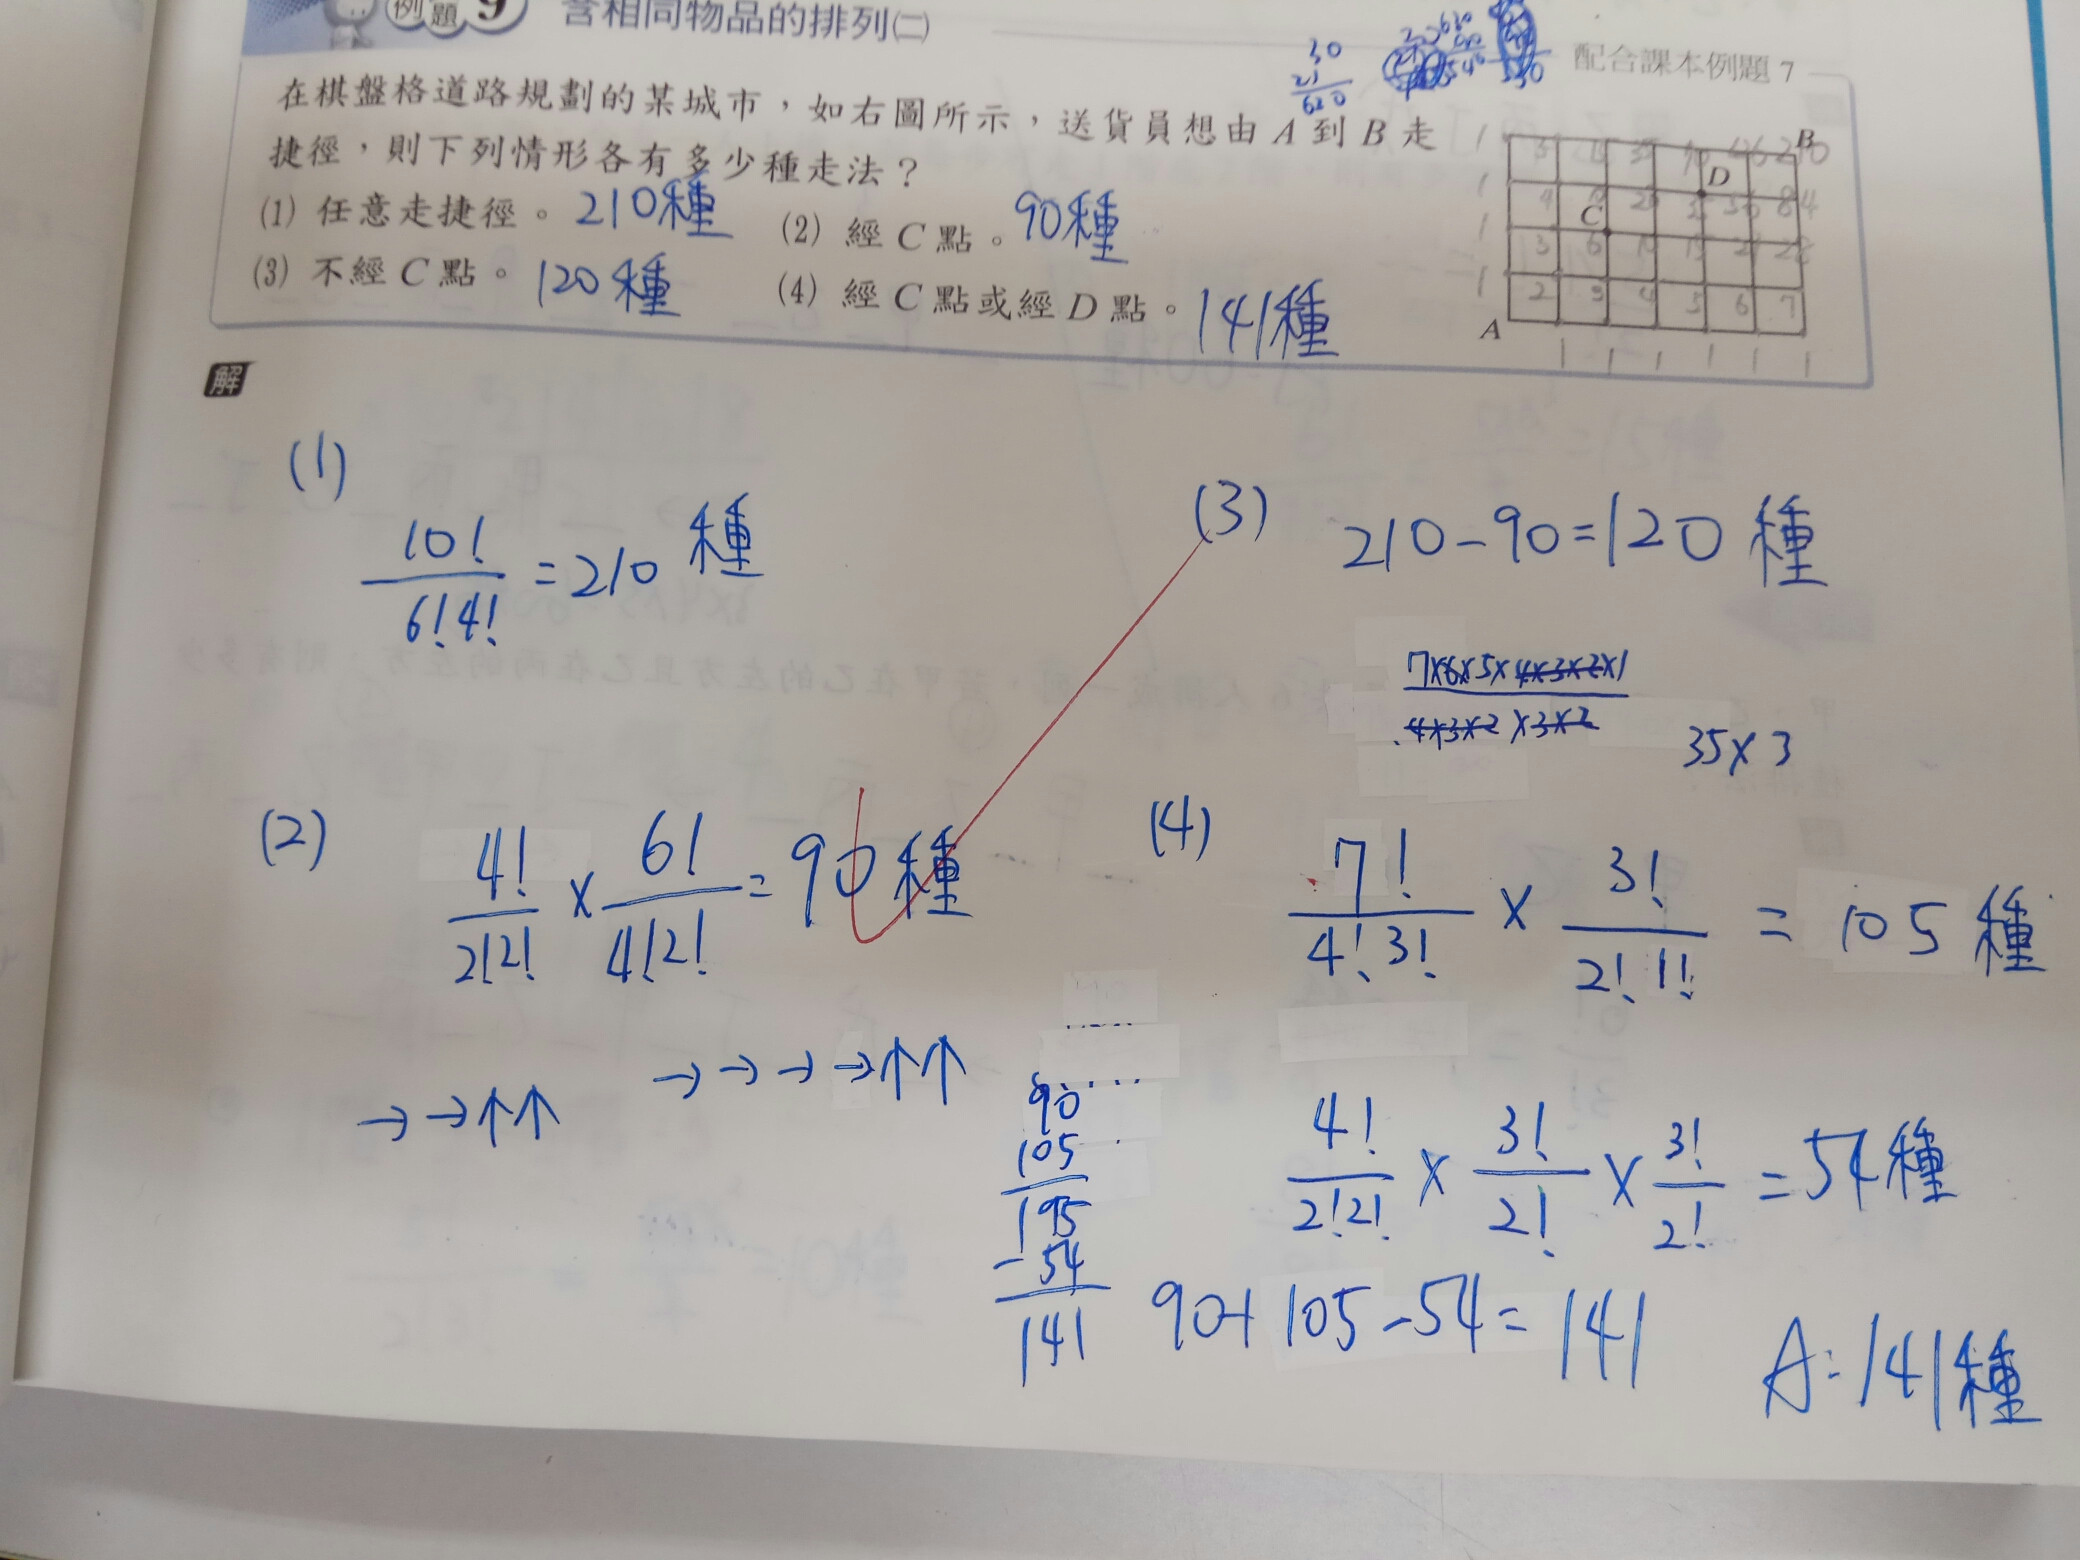 例題 9 含相同物品的排列(二)
配合課本例題 7
在棋盤格道路規劃的某城市，如右圖所示，送貨員想由 A 到 B 走
捷徑，則下列情形各有多少種走法？
(1) 任意走捷徑。 210種 (2) 經 C 點。 90種
(3) 不經 C 點。 120種 (4) 經 C 點或經 D 點。 141種
B
D
C
A
1 1 1 1 1 1
解
(1)
10!/6!4! = 210 種
(3) 210-90=120 種
7×6×5×4×3×2×1
4×3×2×3×2
35×3
(2) 4!/2!2! × 6!/4!2! = 90 種
(4) 7!/4!3! × 3!/2!1! = 105 種
→→↑↑ →→→→↑↑
90
105
195
-54
141
4!/2!2! × 3!/2! × 3!/2! = 54種
90+105-54=141
A:141種